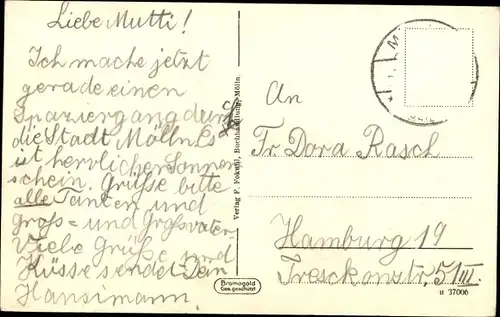 Liebe Mutti!
Ich mache jetzt
gerade einen
Spaziergang durch
die Stadt Mölln. Es
ist herrlicher Sonnen
schein. Grüße bitte
alle Tanten und
groß = und Großvater.
Viele Grüße und
Küsse sendet Dein
Hansimann.
Verlag F. Buchhandlung, Mölln.
An
Fr. Dora Rasch
Hamburg 19
Treskonstr, 51 III.
Bromogold
Ges. geschützt
u 37006